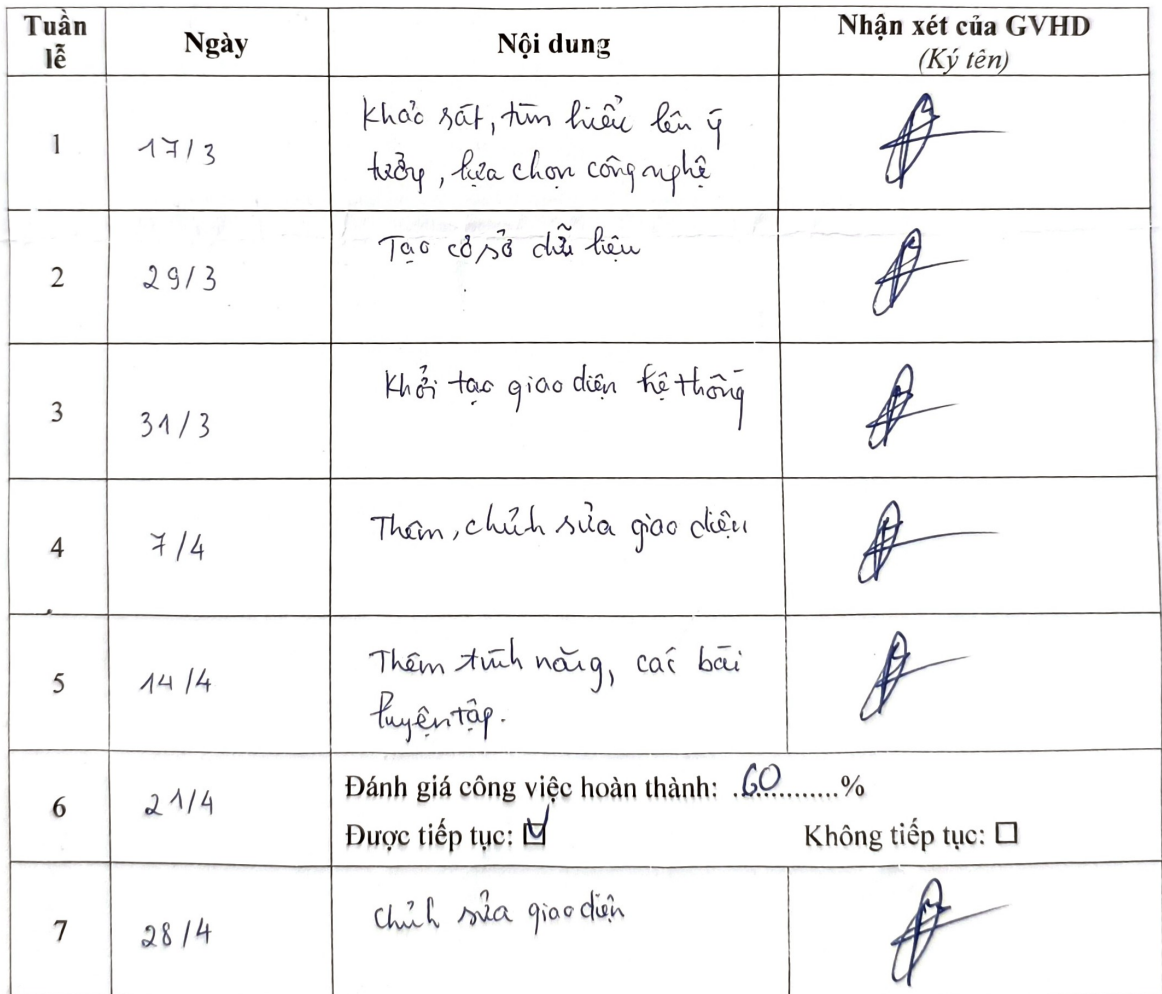 Tuần lễ
Ngày
Nội dung
Nhận xét của GVHD
(Ký tên)
1
17/3
Khảo sát, tìm hiểu lên ý
tưởng, lựa chọn công nghệ
2
29/3
Tạo cở sở dữ liệu
3
31/3
Khởi tạo giao diện hệ thống
4
7/4
Thêm, chỉnh sửa giao diện
5
14/4
Thêm tính năng, các bài
luyện tập.
6
21/4
Đánh giá công việc hoàn thành: .60............%
Được tiếp tục: ☑ Không tiếp tục: ☐
7
28/4
Chỉnh sửa giao diện